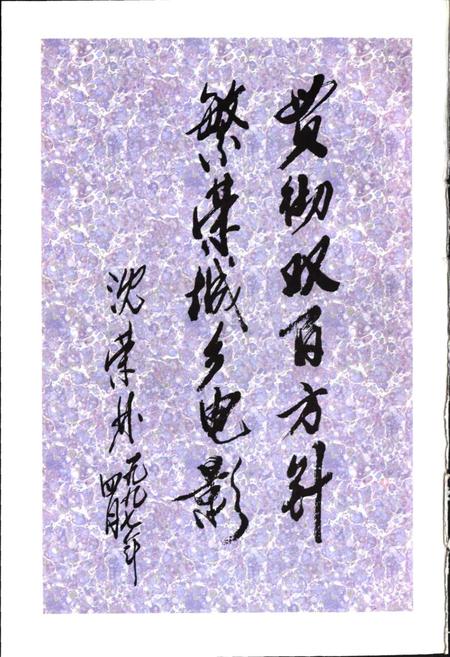 贯彻双百方针
繁荣城乡电影
沈荣林
一九九七年
四月